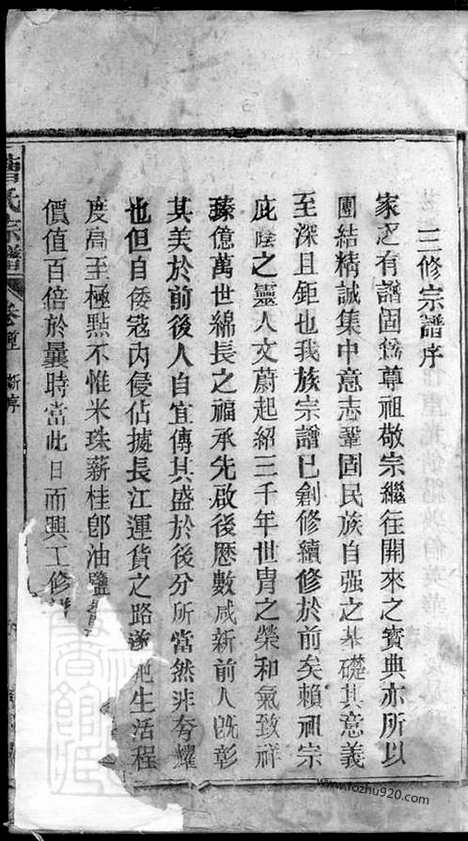 三修宗譜序
家之有譜固爲尊祖敬宗繼往開來之寶典亦所以
團結精誠集中意志鞏固民族自强之基礎其意義
至深且鉅也我族宗譜已創修續修於前矣賴祖宗
庇蔭之靈人文蔚起紹三千年世冑之榮和氣致祥
臻億萬世綿長之福承先啟後歷數咸新前人旣彰
其美於前後人自宜傳其盛於後分所當然非夸耀
也但自倭寇內侵佔據長江運貨之路遂 生活程
度高至極點不惟米珠薪桂卽油鹽
價值百倍於曩時當此日而興工修
氏宗譜
新序
www.fozhu920.com